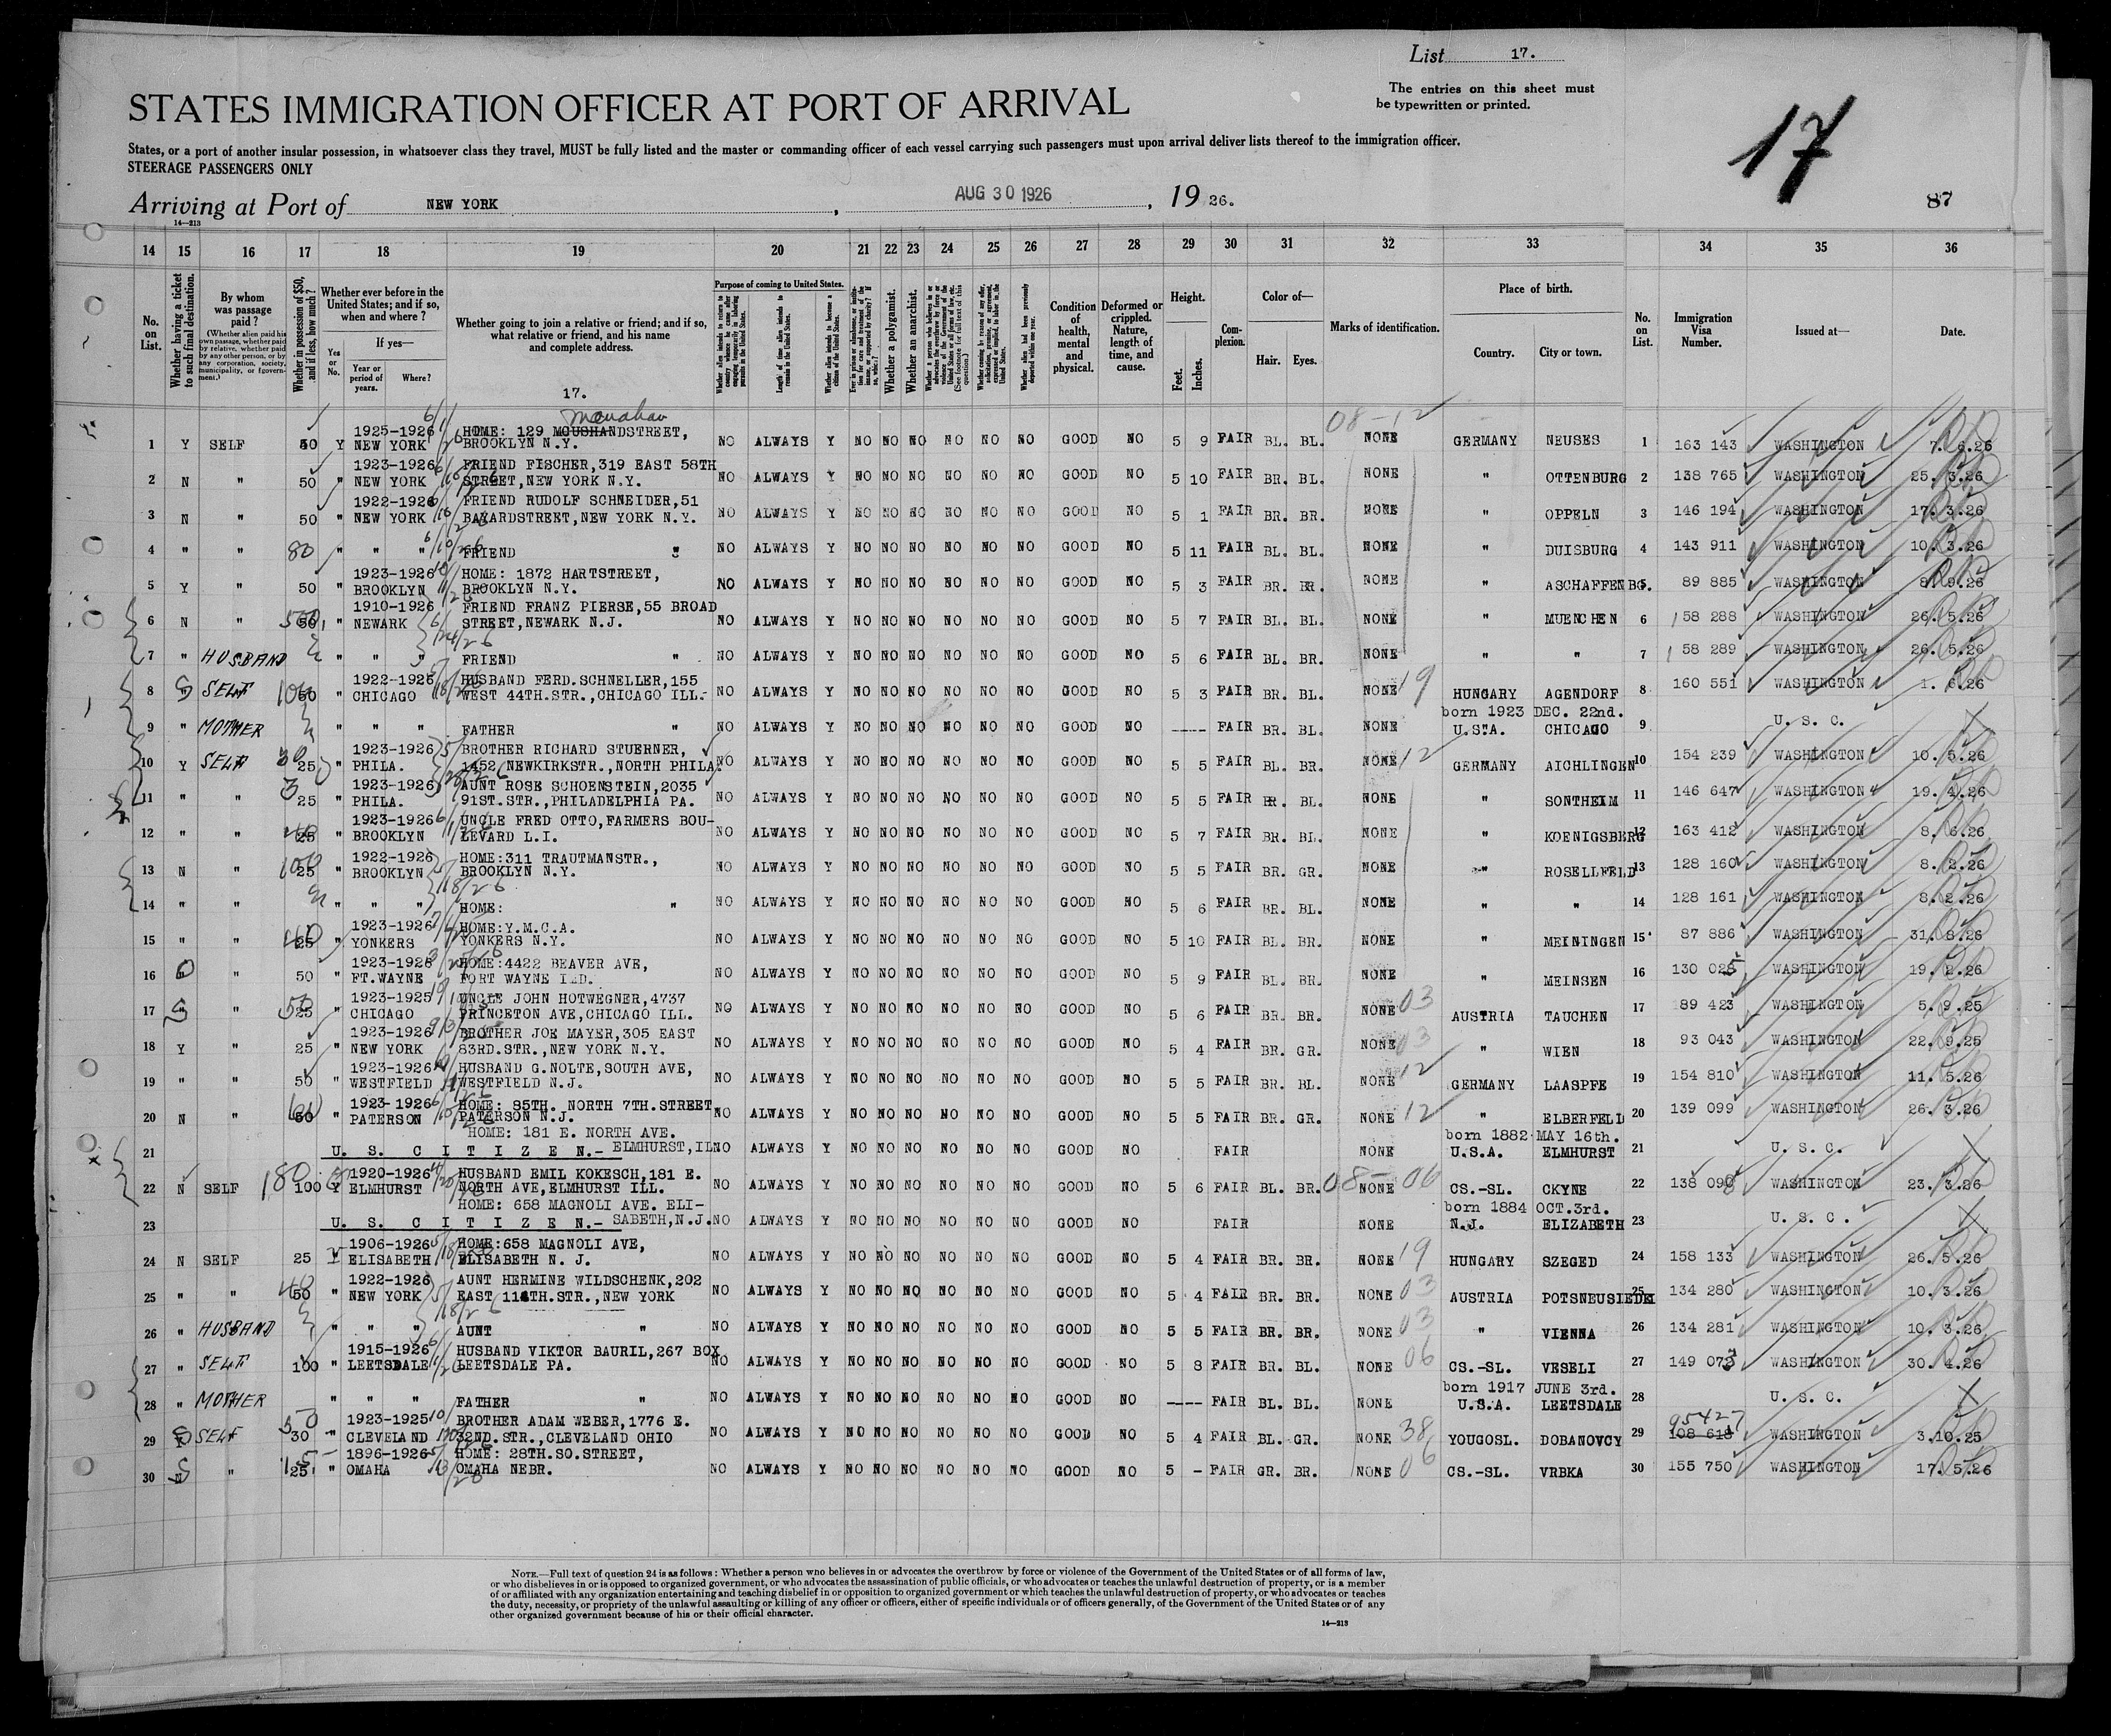 List 17.
The entries on this sheet must
be typewritten or printed.
STATES IMMIGRATION OFFICER AT PORT OF ARRIVAL
17
States, or a port of another insular possession, in whatsoever class they travel, MUST be fully listed and the master or commanding officer of each vessel carrying such passengers must upon arrival deliver lists thereof to the immigration officer.
STEERAGE PASSENGERS ONLY
Arriving at Port of NEW YORK, AUG 30 1926, 19 26.
87
14—213
14 15 16 17 18 19 20 21 22 23 24 25 26 27 28 29 30 31 32 33 34 35 36
No. on List.
Whether having a ticket to such final destination.
By whom was passage paid?
(Whether alien paid his own passage, whether paid by relative, whether paid by any other person, or by any corporation, society, municipality, or government.)
Whether in possession of $50, and if less, how much?
Whether ever before in the United States; and if so, when and where?
Yes or No.
If yes—
Year or period of years.
Where?
Whether going to join a relative or friend; and if so, what relative or friend, and his name and complete address.
17.
Purpose of coming to United States.
Length of time alien intends to remain in the United States.
Whether alien intends to become a citizen of the United States.
Whether a polygamist.
Whether an anarchist.
Condition of health, mental and physical.
Deformed or crippled. Nature, length of time, and cause.
Height.
Feet. Inches.
Complexion.
Color of—
Hair. Eyes.
Marks of identification.
Place of birth.
Country. City or town.
No. on List.
Immigration Visa Number.
Issued at—
Date.
Monahan
1 Y SELF 50 Y 1925-1926 NEW YORK HOME: 129 MOUSHANDSTREET, BROOKLYN N.Y. NO ALWAYS Y NO NO NO NO NO NO GOOD NO 5 9 FAIR BL. BL. NONE GERMANY NEUSES 1 163 143 WASHINGTON 7. 6.26
2 N " 50 " 1923-1926 NEW YORK FRIEND FISCHER,319 EAST 58TH STREET,NEW YORK N.Y. NO ALWAYS Y NO NO NO NO NO NO GOOD NO 5 10 FAIR BR. BL. NONE " OTTENBURG 2 138 765 WASHINGTON 25. 3.26
3 N " 50 " 1922-1926 NEW YORK FRIEND RUDOLF SCHNEIDER,51 BAYARDSTREET,NEW YORK N.Y. NO ALWAYS Y NO NO NO NO NO NO GOOD NO 5 1 FAIR BR. BR. NONE " OPPELN 3 146 194 WASHINGTON 17. 3.26
4 " " 80 " " " FRIEND " NO ALWAYS Y NO NO NO NO NO NO GOOD NO 5 11 FAIR BL. BL. NONE " DUISBURG 4 143 911 WASHINGTON 10. 3.26
5 Y " 50 " 1923-1926 BROOKLYN HOME: 1872 HARTSTREET, BROOKLYN N.Y. NO ALWAYS Y NO NO NO NO NO NO GOOD NO 5 3 FAIR BR. BR. NONE " ASCHAFFENBG. 5 89 885 WASHINGTON 8. 9.26
6 N " 50 " 1910-1926 NEWARK FRIEND FRANZ PIERSE,55 BROAD STREET,NEWARK N.J. NO ALWAYS Y NO NO NO NO NO NO GOOD NO 5 7 FAIR BL. BL. NONE " MUENCHEN 6 158 288 WASHINGTON 26. 5.26
7 " HUSBAND " " " FRIEND " NO ALWAYS Y NO NO NO NO NO NO GOOD NO 5 6 FAIR BL. BR. NONE " " 7 158 289 WASHINGTON 26. 5.26
8 SELF 100 " 1922-1926 CHICAGO HUSBAND FERD.SCHNELLER,155 WEST 44TH.STR.,CHICAGO ILL.- NO ALWAYS Y NO NO NO NO NO NO GOOD NO 5 3 FAIR BR. BL. NONE 19 HUNGARY AGENDORF 8 160 551 WASHINGTON 1. 6.26
9 " MOTHER " " " FATHER " NO ALWAYS Y NO NO NO NO NO NO GOOD NO ---- FAIR BR. BL. NONE born 1923 DEC. 22nd. U.S.A. CHICAGO 9 U. S. C.
10 Y SELF 25 " 1923-1926 PHILA. BROTHER RICHARD STUERNER, 1452 NEWKIRKSTR.,NORTH PHILA. NO ALWAYS Y NO NO NO NO NO NO GOOD NO 5 5 FAIR BL. BR. NONE 12 GERMANY AICHLINGEN 10 154 239 WASHINGTON 10. 5.26
11 " " 25 " 1923-1926 PHILA. AUNT ROSE SCHOENSTEIN,2035 91ST.STR.,PHILADELPHIA PA. NO ALWAYS Y NO NO NO NO NO NO GOOD NO 5 5 FAIR BR. BL. NONE " SONTHEIM 11 146 647 WASHINGTON 19. 4.26
12 " " 25 " 1923-1926 BROOKLYN UNCLE FRED OTTO,FARMERS BOU- LEVARD L.I. NO ALWAYS Y NO NO NO NO NO NO GOOD NO 5 7 FAIR BR. BL. NONE " KOENIGSBERG 12 163 412 WASHINGTON 8. 6.26
13 N " 25 " 1922-1926 BROOKLYN HOME:311 TRAUTMANSTR., BROOKLYN N.Y. NO ALWAYS Y NO NO NO NO NO NO GOOD NO 5 5 FAIR BR. GR. NONE " ROSELLFELD 13 128 160 WASHINGTON 8. 2.26
14 " " " " " HOME: " NO ALWAYS Y NO NO NO NO NO NO GOOD NO 5 6 FAIR BR. BL. NONE " " 14 128 161 WASHINGTON 8. 2.26
15 " " 25 " 1923-1926 YONKERS HOME:Y.M.C.A. YONKERS N.Y. NO ALWAYS Y NO NO NO NO NO NO GOOD NO 5 10 FAIR BL. BR. NONE " MEININGEN 15 87 886 WASHINGTON 31. 8.26
16 " 50 " 1923-1926 FT.WAYNE HOME:4422 BEAVER AVE, FORT WAYNE IND. NO ALWAYS Y NO NO NO NO NO NO GOOD NO 5 9 FAIR BL. BR. NONE " MEINSEN 16 130 025 WASHINGTON 19. 2.26
17 " 25 " 1923-1925 CHICAGO UNCLE JOHN HOTWEGNER,4737 PRINCETON AVE,CHICAGO ILL. NO ALWAYS Y NO NO NO NO NO NO GOOD NO 5 6 FAIR BR. BR. NONE 03 AUSTRIA TAUCHEN 17 89 423 WASHINGTON 5. 9.25
18 Y " 25 " 1923-1926 NEW YORK BROTHER JOE MAYER,305 EAST 83RD.STR.,NEW YORK N.Y. NO ALWAYS Y NO NO NO NO NO NO GOOD NO 5 4 FAIR BR. GR. NONE 03 " WIEN 18 93 043 WASHINGTON 22. 9.25
19 " " 50 " 1923-1926 WESTFIELD HUSBAND G.NOLTE,SOUTH AVE, WESTFIELD N.J. NO ALWAYS Y NO NO NO NO NO NO GOOD NO 5 5 FAIR BR. BL. NONE 12 GERMANY LAASPFE 19 154 810 WASHINGTON 11. 5.26
20 N " 50 " 1923-1926 PATERSON HOME: 85TH. NORTH 7TH.STREET PATERSON N.J. NO ALWAYS Y NO NO NO NO NO NO GOOD NO 5 5 FAIR BR. GR. NONE 12 " ELBERFELD 20 139 099 WASHINGTON 26. 3.26
21 U. S. C I T I Z E N.- HOME: 181 E. NORTH AVE. ELMHURST,ILL. NO ALWAYS Y NO NO NO NO NO NO GOOD NO FAIR NONE born 1882 MAY 16th. U.S.A. ELMHURST 21 U. S. C.
22 N SELF 180 100 Y 1920-1926 ELMHURST HUSBAND EMIL KOKESCH,181 E. NORTH AVE,ELMHURST ILL. NO ALWAYS Y NO NO NO NO NO NO GOOD NO 5 6 FAIR BL. BR. NONE CS.-SL. CKYNE 22 138 098 WASHINGTON 23. 3.26
23 U. S. C I T I Z E N.- HOME: 658 MAGNOLI AVE. ELI- SABETH,N.J. NO ALWAYS Y NO NO NO NO NO NO GOOD NO FAIR NONE born 1884 OCT.3rd. N.J. ELIZABETH 23 U. S. C.
24 N SELF 25 1906-1926 ELISABETH HOME:658 MAGNOLI AVE, ELISABETH N. J. NO ALWAYS Y NO NO NO NO NO NO GOOD NO 5 4 FAIR BR. BR. NONE 19 HUNGARY SZEGED 24 158 133 WASHINGTON 26. 5.26
25 " " 50 " 1922-1926 NEW YORK AUNT HERMINE WILDSCHENK,202 EAST 114TH.STR.,NEW YORK NO ALWAYS Y NO NO NO NO NO NO GOOD NO 5 4 FAIR BR. BR. NONE 03 AUSTRIA POTSNEUSIEDEL 25 134 280 WASHINGTON 10. 3.26
26 " HUSBAND " " " AUNT " NO ALWAYS Y NO NO NO NO NO NO GOOD NO 5 5 FAIR BR. BR. NONE 03 " VIENNA 26 134 281 WASHINGTON 10. 3.26
27 " SELF 100 " 1915-1926 LEETSDALE HUSBAND VIKTOR BAURIL,267 BOX LEETSDALE PA. NO ALWAYS Y NO NO NO NO NO NO GOOD NO 5 8 FAIR BR. BL. NONE 06 CS.-SL. VESELI 27 149 073 WASHINGTON 30. 4.26
28 " MOTHER " " " FATHER " NO ALWAYS Y NO NO NO NO NO NO GOOD NO ---- FAIR BL. BL. NONE born 1917 JUNE 3rd. U.S.A. LEETSDALE 28 U. S. C.
29 SELF 50 30 " 1923-1925 CLEVELAND BROTHER ADAM WEBER,1776 E. 32ND.STR.,CLEVELAND OHIO NO ALWAYS Y NO NO NO NO NO NO GOOD NO 5 4 FAIR BL. GR. NONE 38 YOUGOSL. DOBANOVCY 29 95427 108 618 WASHINGTON 3.10.25
30 " 25 " 1896-1926 OMAHA HOME: 28TH.SO.STREET, OMAHA NEBR. NO ALWAYS Y NO NO NO NO NO NO GOOD NO 5 - FAIR GR. BR. NONE 06 CS.-SL. VRBKA 30 155 750 WASHINGTON 17. 5.26
NOTE.—Full text of question 24 is as follows: Whether a person who believes in or advocates the overthrow by force or violence of the Government of the United States or of all forms of law,
or who disbelieves in or is opposed to organized government, or who advocates the assassination of public officials, or who advocates or teaches the unlawful destruction of property, or is a member
of or affiliated with any organization entertaining and teaching disbelief in or opposition to organized government or which teaches the unlawful destruction of property, or who advocates or teaches
the duty, necessity, or propriety of the unlawful assaulting or killing of any officer or officers, either of specific individuals or of officers generally, of the Government of the United States or of any
other organized government because of his or their official character.
14—213